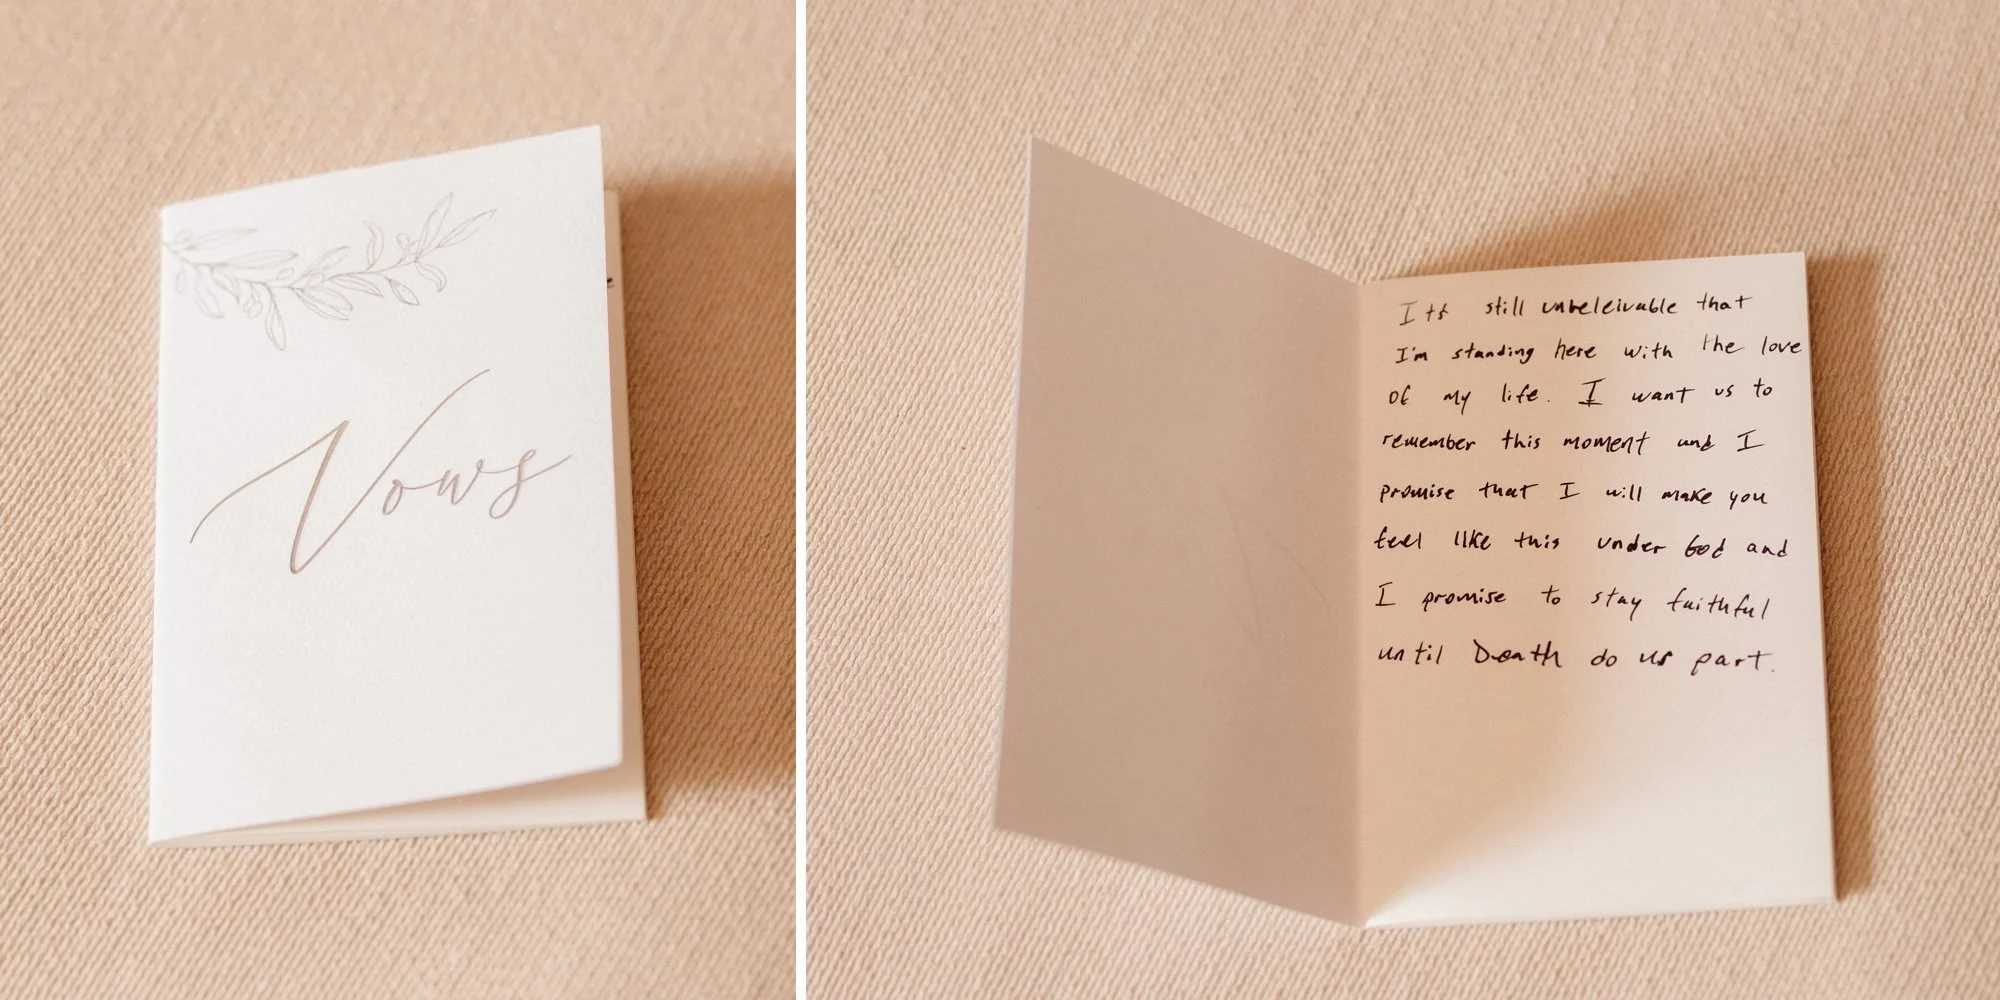 Vows
Its still unbeleivable that
I'm standing here with the love
of my life. I want us to
remember this moment and I
promise that I will make you
feel like this under God and
I promise to stay faithful
until Death do us part.